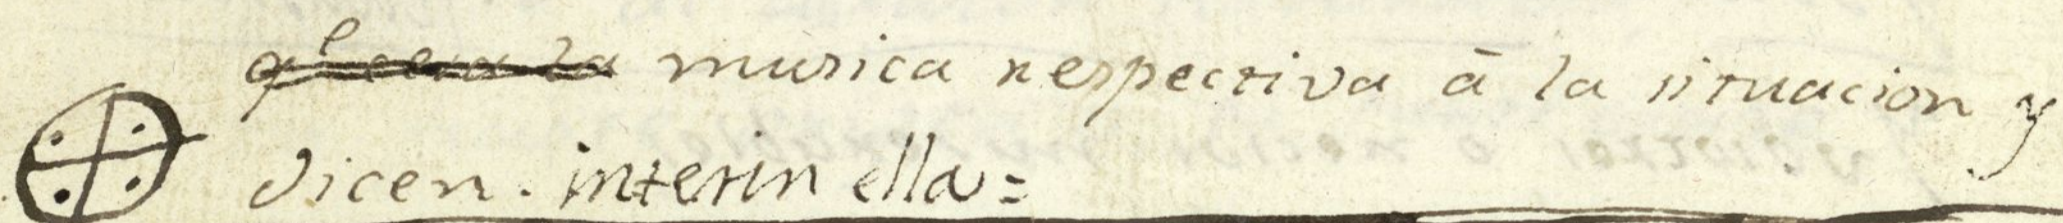 musica respectiva â la situacion y
dicen. interin ella=